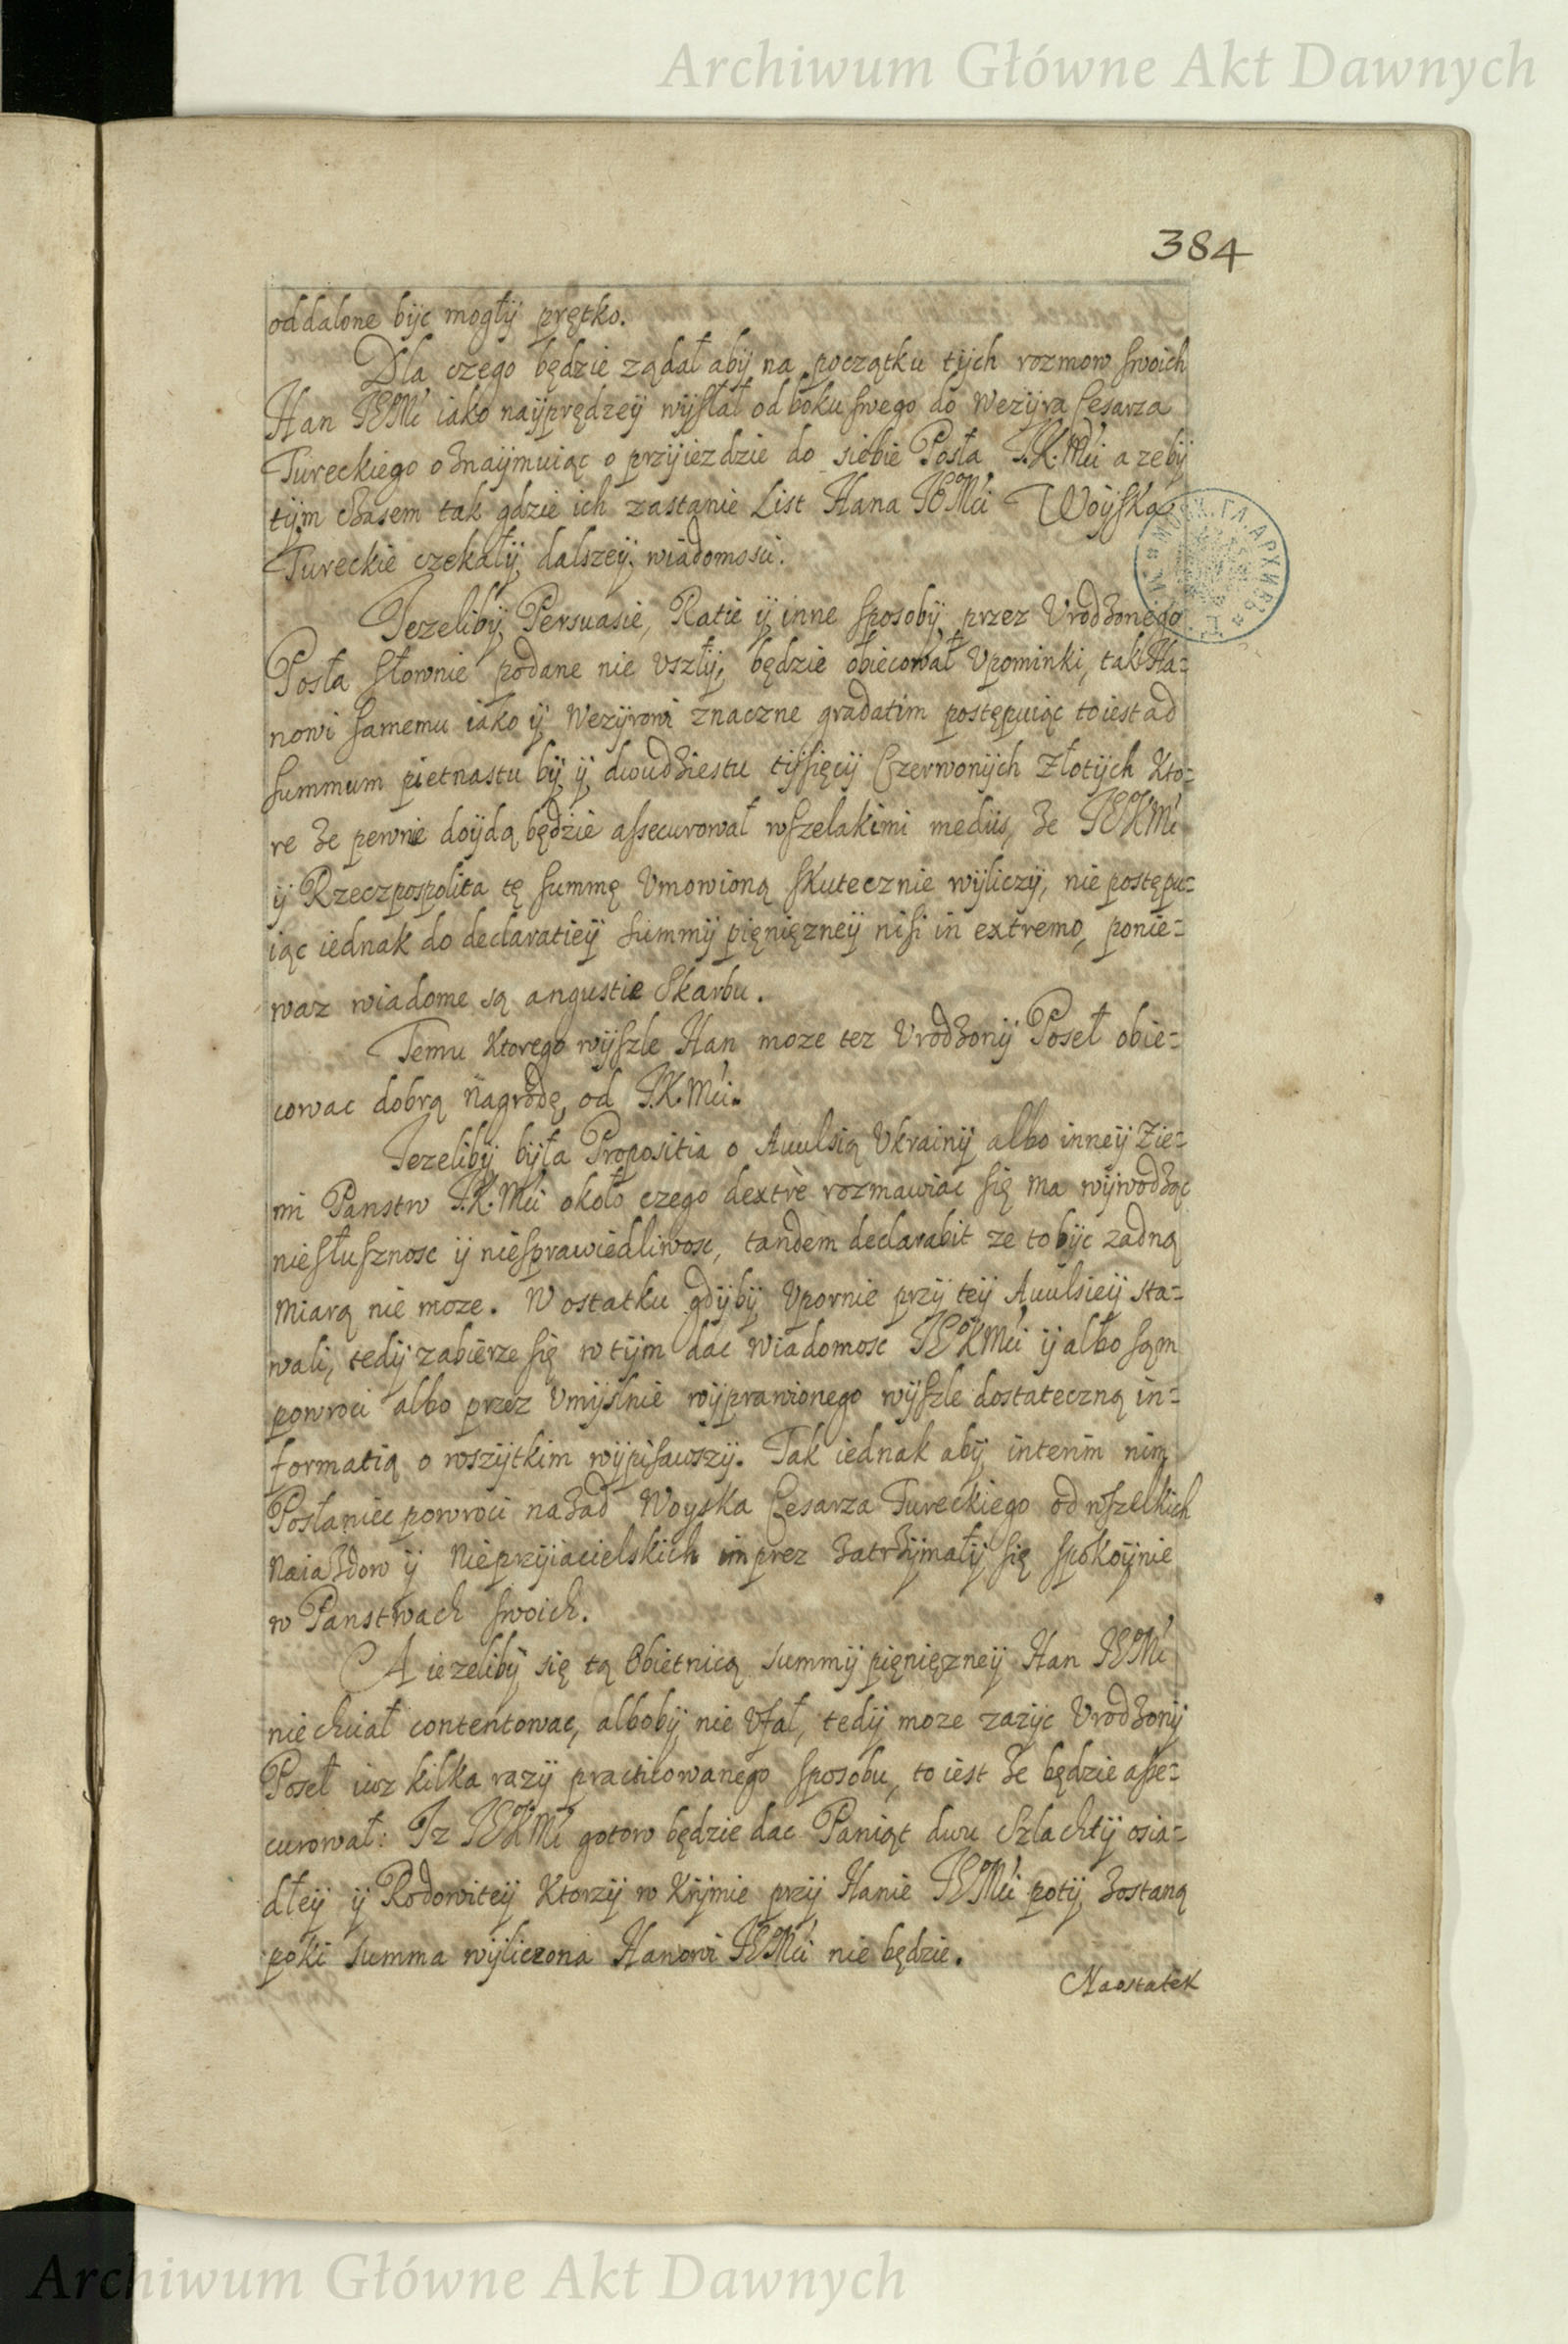 Archiwum Główne Akt Dawnych
384
oddalone bÿc mogłÿ prętko.
Dla czego będzie ządał abÿ na początku tÿch rozmow swoich
Han JEMć iako naÿprędzeÿ wÿsłał od boku swego do Wezÿra Cesarza
Tureckiego oznaÿmuiąc o przÿiezdzie do siebie Posła J.K.Mci a zebÿ
tÿm czasem tak gdzie ich zastanie List Hana JEMći Woÿska
Tureckie czekałÿ dalszeÿ wiadomosci.
Jezelibÿ Persuasie, Ratie ÿ inne sposobÿ przez Urodzonego
Posła słownie podane nie uszłÿ, będzie obiecował Upominki, tak Ha=
nowi samemu iako ÿ Wezÿrowi znaczne gradatim postępuiąc to iest ad
summum pietnastu bÿ ÿ dwudziestu tÿsięcÿ Czerwonÿch Złotÿch Kto=
re ze pewnie doÿdą będzie assecurował wszelakimi mediis, ze JEKMć
ÿ Rzeczpospolita tę summę Umowioną skutecznie wÿliczÿ, nie postępu=
iąc iednak do declaratieÿ summÿ pięniężneÿ nisi in extremo, ponie=
waz wiadome są angustie Skarbu.
Temu Ktorego wÿszle Han moze tez Urodzonÿ Poseł obie=
cowac dobrą nagrodę od J.K.Mći.
Jezelibÿ bÿła Propositia o Auulsią Ukrainÿ albo inneÿ Zie=
mi Panstw J.K.Mći około czego dextrè rozmawiac się ma wÿwodząc
niesłusznosc ÿ niesprawiedliwosc, tandem declarabit ze to bÿc zadną
miarą nie moze. W ostatku gdÿbÿ Upornie przÿ teÿ Auulsieÿ sta=
wali, tedÿ zabierze się w tÿm dac wiadomosc JEKMći ÿ albo sąm
powroci albo przez Umÿslnie wÿprawionego wÿszle dostateczną in=
formatią o wszÿtkim wÿpisawszÿ. Tak iednak abÿ interim nim
Posłaniec powroci nazad Woyska Cesarza Tureckiego od wszelkich
naiazdow ÿ Nieprzÿiacielskich imprez zatrzÿmałÿ się spokoÿnie
w Panstwach swoich.
A iezelibÿ się tą Obietnicą summÿ pięniężneÿ Han JEMć
niechciał contentowac, albobÿ nie Ufał, tedÿ moze zazÿc Urodzonÿ
Poseł iuz kilka razÿ practicowanego sposobu, to iest ze będzie asse=
curował: Iz JEKMć gotow będzie dac Paniąt dwu Szlachtÿ osia=
dłeÿ ÿ Rodowiteÿ Ktorzÿ w Krÿmie przÿ Hanie JEMći potÿ zostaną
poki summa wÿliczona Hanowi JEMći nie będzie.
Naostatek
Archiwum Główne Akt Dawnych